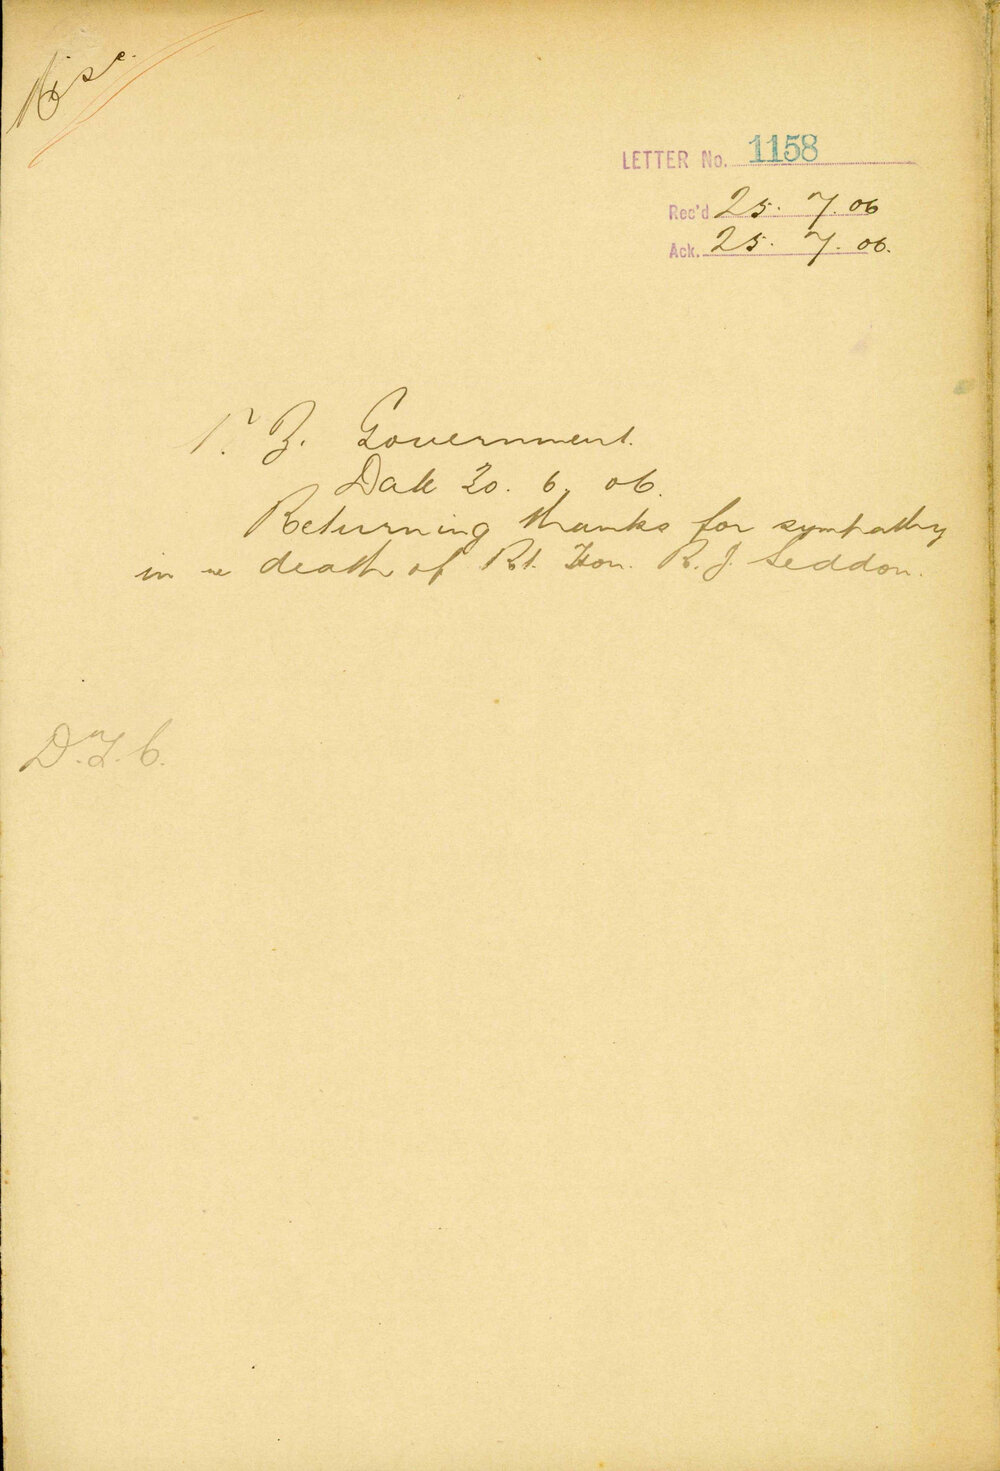 Misc.
LETTER No. 1158
Rec'd 25. 7. 06
Ack. 25. 7. 06.
N. Z. Government.
Date 20. 6. 06.
Returning thanks for sympathy
in re death of Rt. Hon. R. J. Seddon.